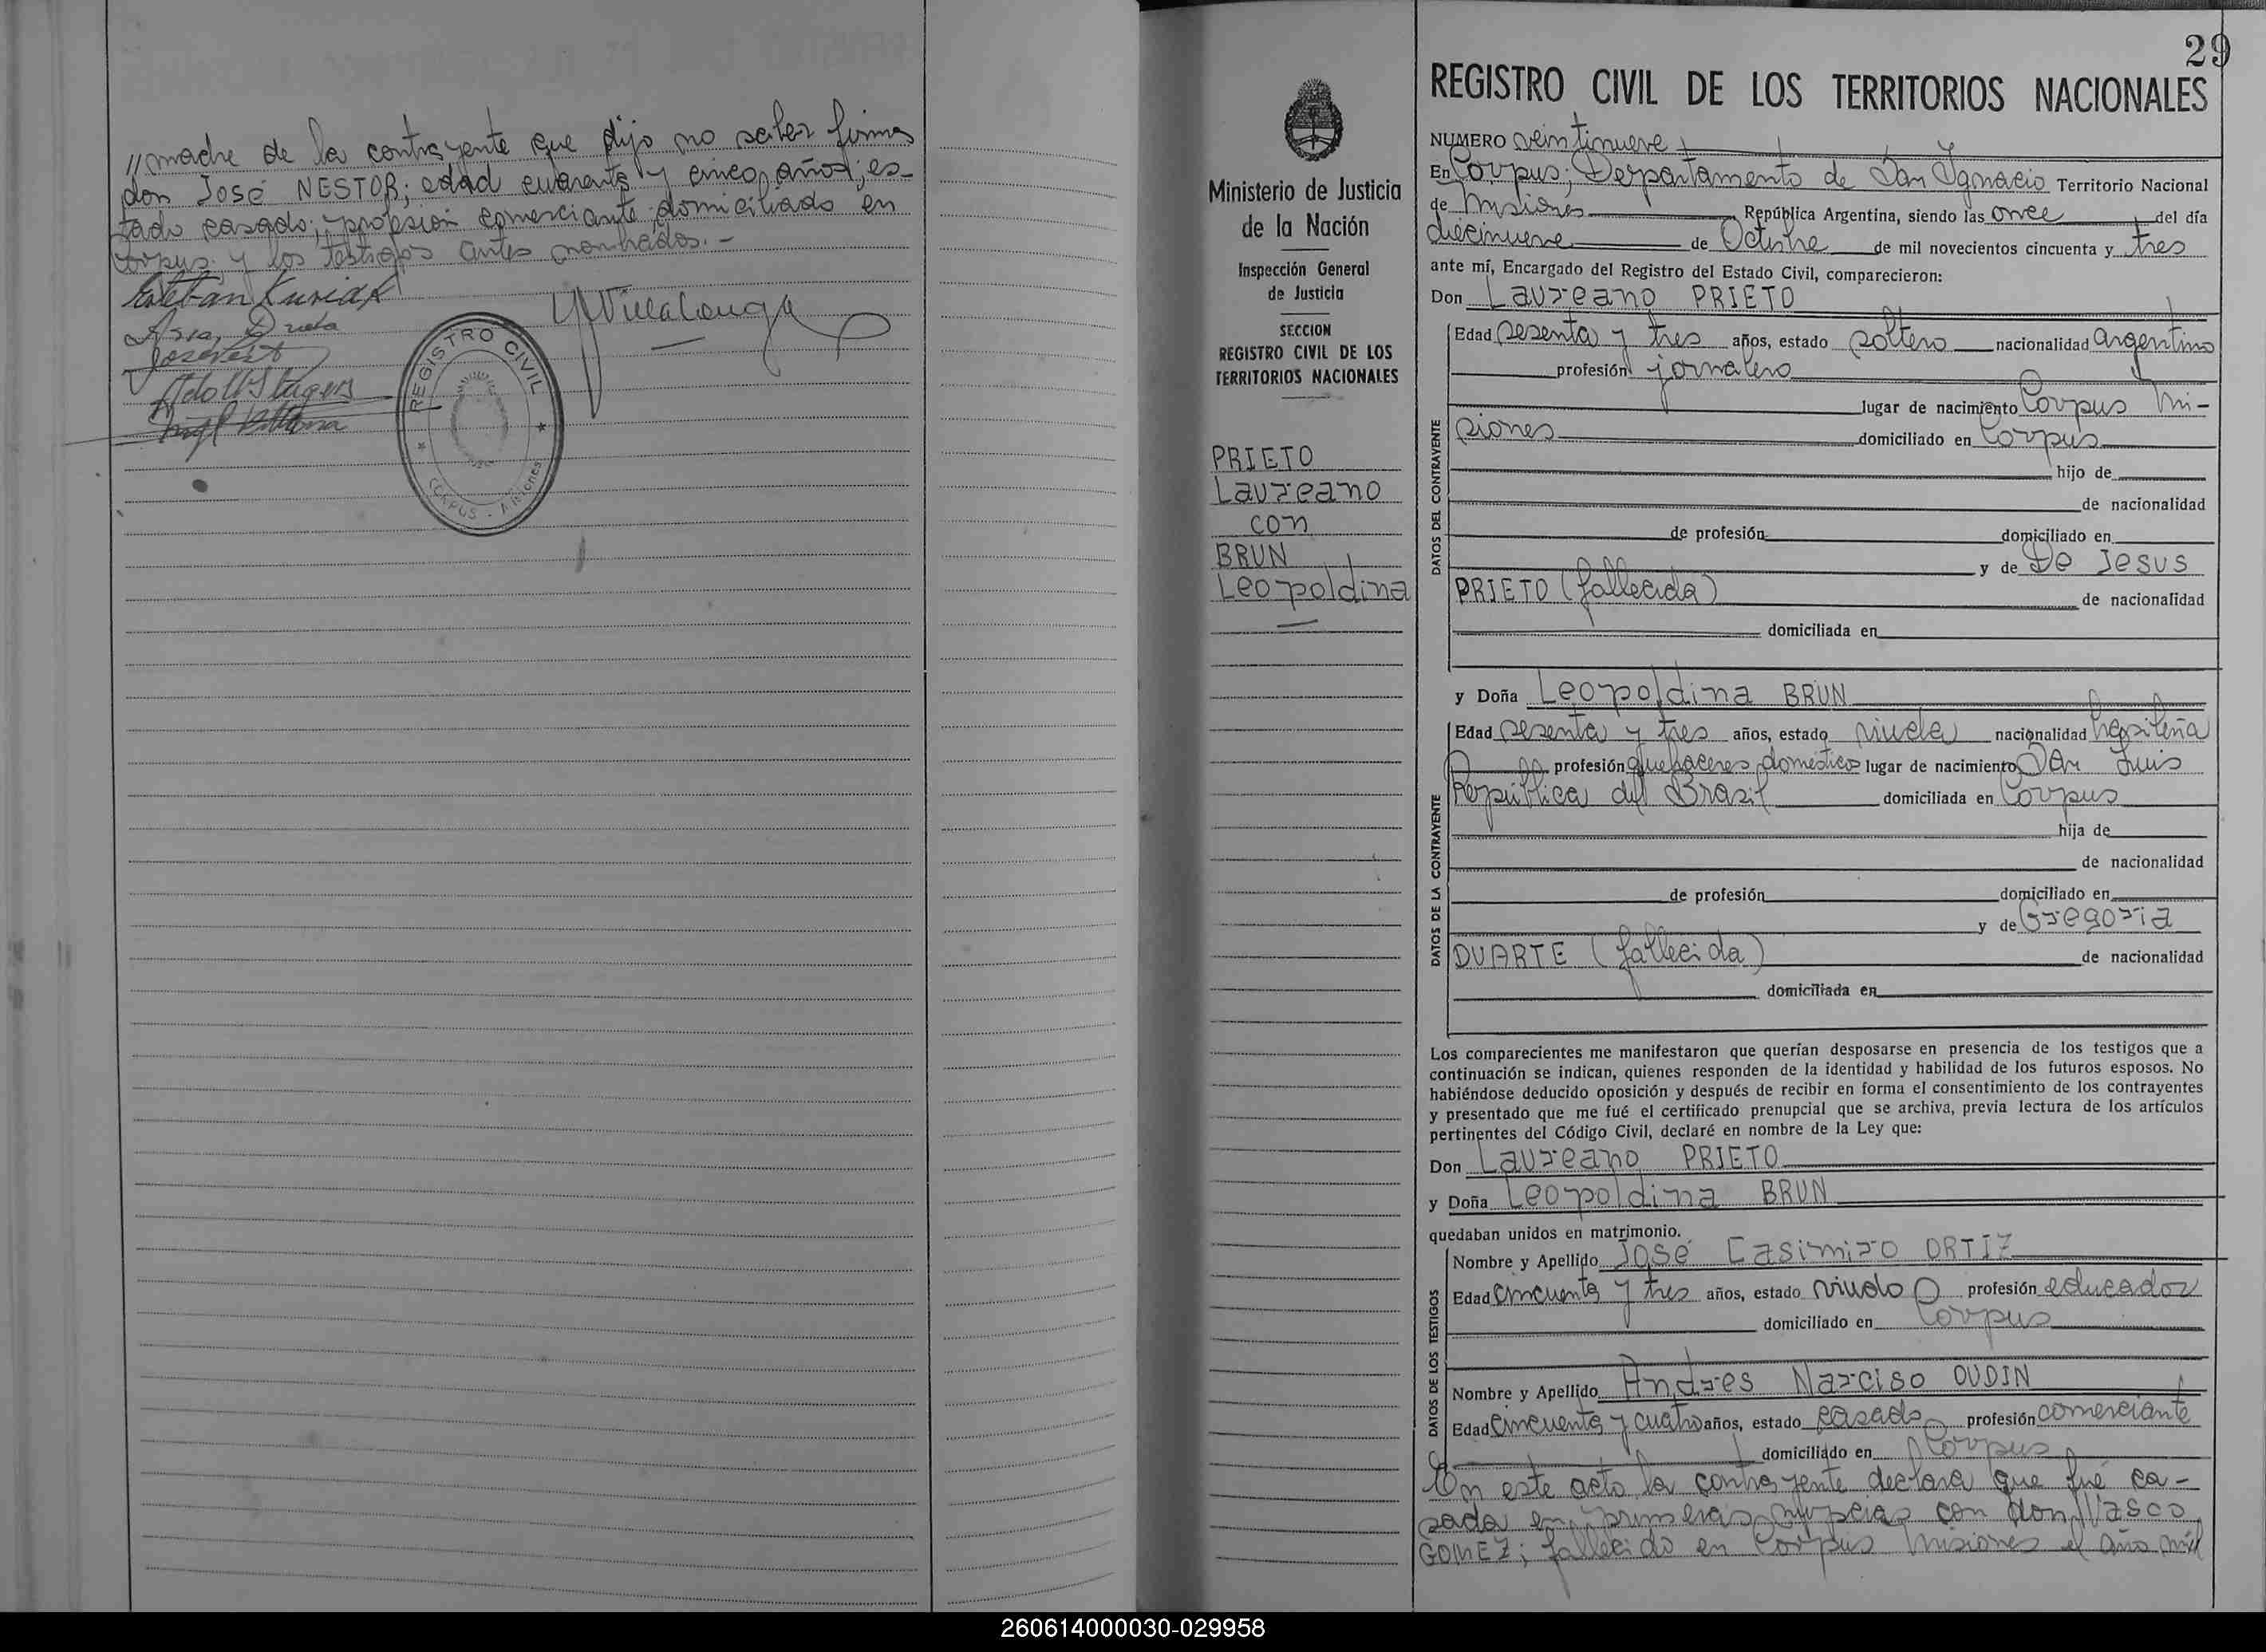 // madre de la contrayente que dijo no saber firmar
don José NESTOR; edad cuarenta y cinco años; es-
tado casado; profesión comerciante domiciliado en
Corpus y los testigos antes nombrados. -
Esteban
REGISTRO CIVIL
CORPUS - Misiones
29
Ministerio de Justicia
de la Nación
Inspección General
de Justicia
SECCION
REGISTRO CIVIL DE LOS
TERRITORIOS NACIONALES
PRIETO
Laureano
con
BRUN
Leopoldina
REGISTRO CIVIL DE LOS TERRITORIOS NACIONALES
NUMERO veintinueve
En Corpus; Departamento de San Ignacio Territorio Nacional
de Misiones República Argentina, siendo las once del día
diecinueve de Octubre de mil novecientos cincuenta y tres
ante mí, Encargado del Registro del Estado Civil, comparecieron:
Don Laureano PRIETO
DATOS DEL CONTRAYENTE
Edad sesenta y tres años, estado soltero nacionalidad argentino
profesión jornalero
lugar de nacimiento Corpus Mi-
siones domiciliado en Corpus
hijo de
de nacionalidad
de profesión domiciliado en
y de De Jesus
PRIETO (fallecida) de nacionalidad
domiciliada en
y Doña Leopoldina BRUN
DATOS DE LA CONTRAYENTE
Edad sesenta y tres años, estado viuda nacionalidad brasileña
profesión quehaceres domésticos lugar de nacimiento San Luis
República del Brasil domiciliada en Corpus
hija de
de nacionalidad
de profesión domiciliado en
y de Gregoria
DUARTE (fallecida) de nacionalidad
domiciliada en
Los comparecientes me manifestaron que querían desposarse en presencia de los testigos que a
continuación se indican, quienes responden de la identidad y habilidad de los futuros esposos. No
habiéndose deducido oposición y después de recibir en forma el consentimiento de los contrayentes
y presentado que me fué el certificado prenupcial que se archiva, previa lectura de los artículos
pertinentes del Código Civil, declaré en nombre de la Ley que:
Don Laureano PRIETO
y Doña Leopoldina BRUN
quedaban unidos en matrimonio.
DATOS DE LOS TESTIGOS
Nombre y Apellido José Casimiro ORTIZ
Edad cincuenta y tres años, estado viudo profesión educador
domiciliado en Corpus
Nombre y Apellido Andres Narciso OUDIN
Edad cincuenta y cuatro años, estado casado profesión comerciante
domiciliado en Corpus
En este acto la contrayente declara que fué ca-
sada en primeras nupcias con don Vasco
GOMEZ; fallecido en Corpus Misiones el año mil
260614000030-029958